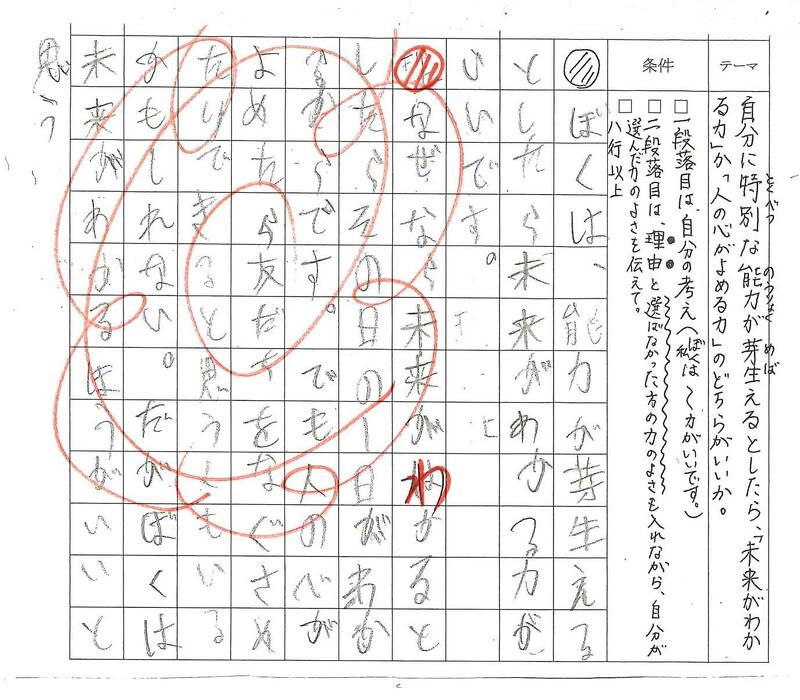 テーマ
自分に特別な能力が芽生えるとしたら、「未来がわか
る力」か「人の心がよめる力」のどちらがいいか。
とくべつ
のうりょく
めば
条件
□一段落目は、自分の考え(ぼくは 私は 〜力がいいです。)
□二段落目は、理由と選ばなかった方の力のよさも入れながら、自分が
選んだ力のよさを伝えて。
□八行以上
ぼくは、能力が芽生える
としたら未来がわかる力が
いいです。
なぜなら未来がわかると
したらその日の一日が
からです。でも人の心が
よめたら友だちをなぐさめ
たりできると思うし
かもしれない。だがぼくは
未来がわかるほうがいいと
思う